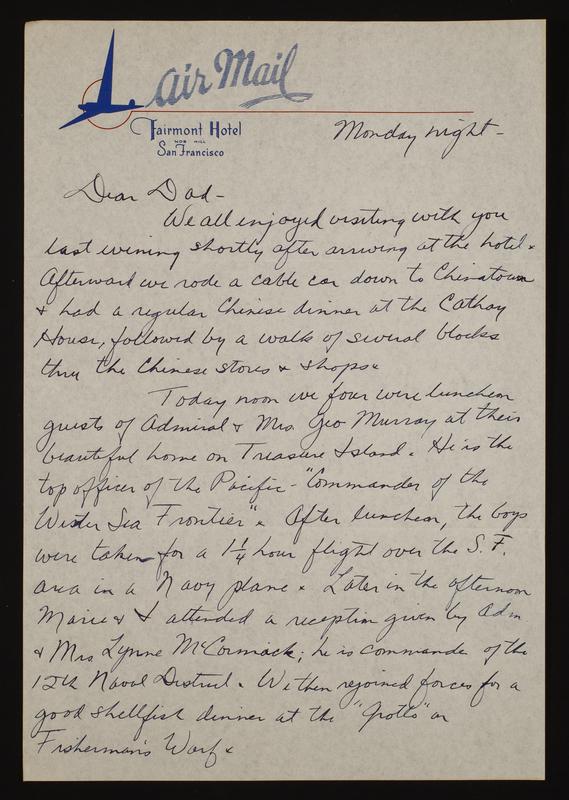 Air Mail
Fairmont Hotel
NOB HILL
San Francisco
Monday night -
Dear Dad -
We all enjoyed visiting with you
last evening shortly after arriving at the hotel.
Afterward we rode a cable car down to Chinatown
& had a regular Chinese dinner at the Cathay
House, followed by a walk of several blocks
thru the Chinese stores & shops.
Today noon we four were luncheon
guests of Admiral & Mrs. Geo Murray at their
beautiful home on Treasure Island. He is the
top officer of the Pacific - "Commander of the
Wester Sea Frontier". After luncheon, the boys
were taken for a 1 1/4 hour flight over the S. F.
area in a Navy plane. Later in the afternoon
Marie & I attended a reception given by Adm
& Mrs Lynne McCormack; he is commander of the
12th Naval District. We then rejoined forces for a
good shellfish dinner at the "Grotto" on
Fisherman's Warf.